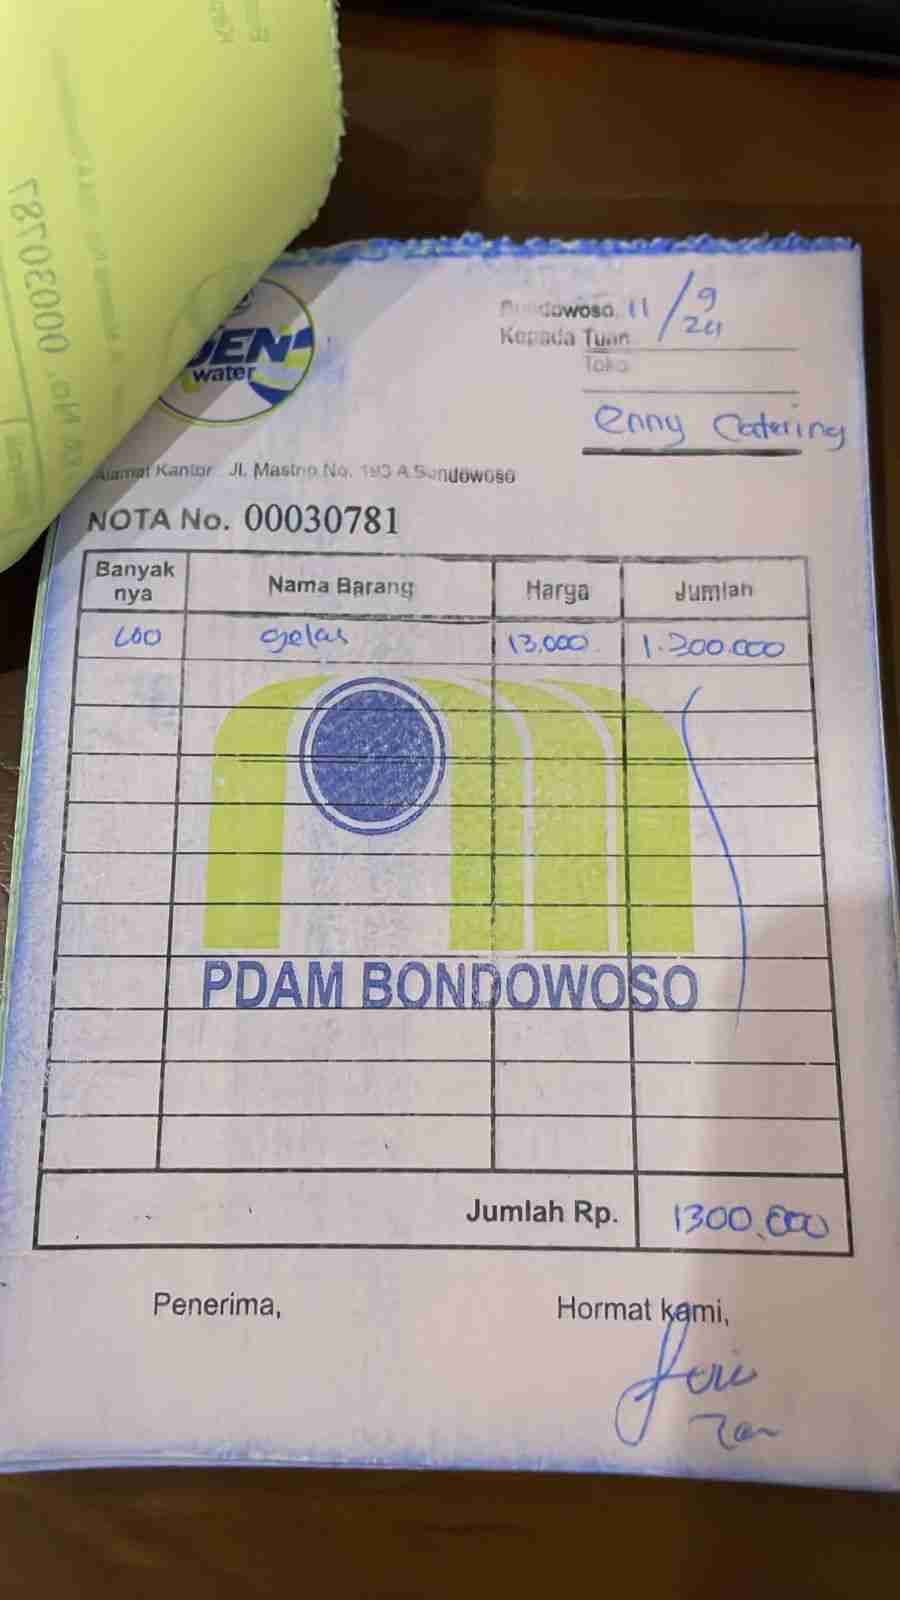 No. 00030787
JEN
water
Bondowoso, 11/9 24
Kepada Tuan
Toko
enny Catering
Alamat Kantor Jl. Mastrip No. 193 A Bondowoso
NOTA No. 00030781
Banyak nya Nama Barang Harga Jumlah
100 gelas 13.000 1.300.000
PDAM BONDOWOSO
Jumlah Rp. 1300.000
Penerima, Hormat kami,